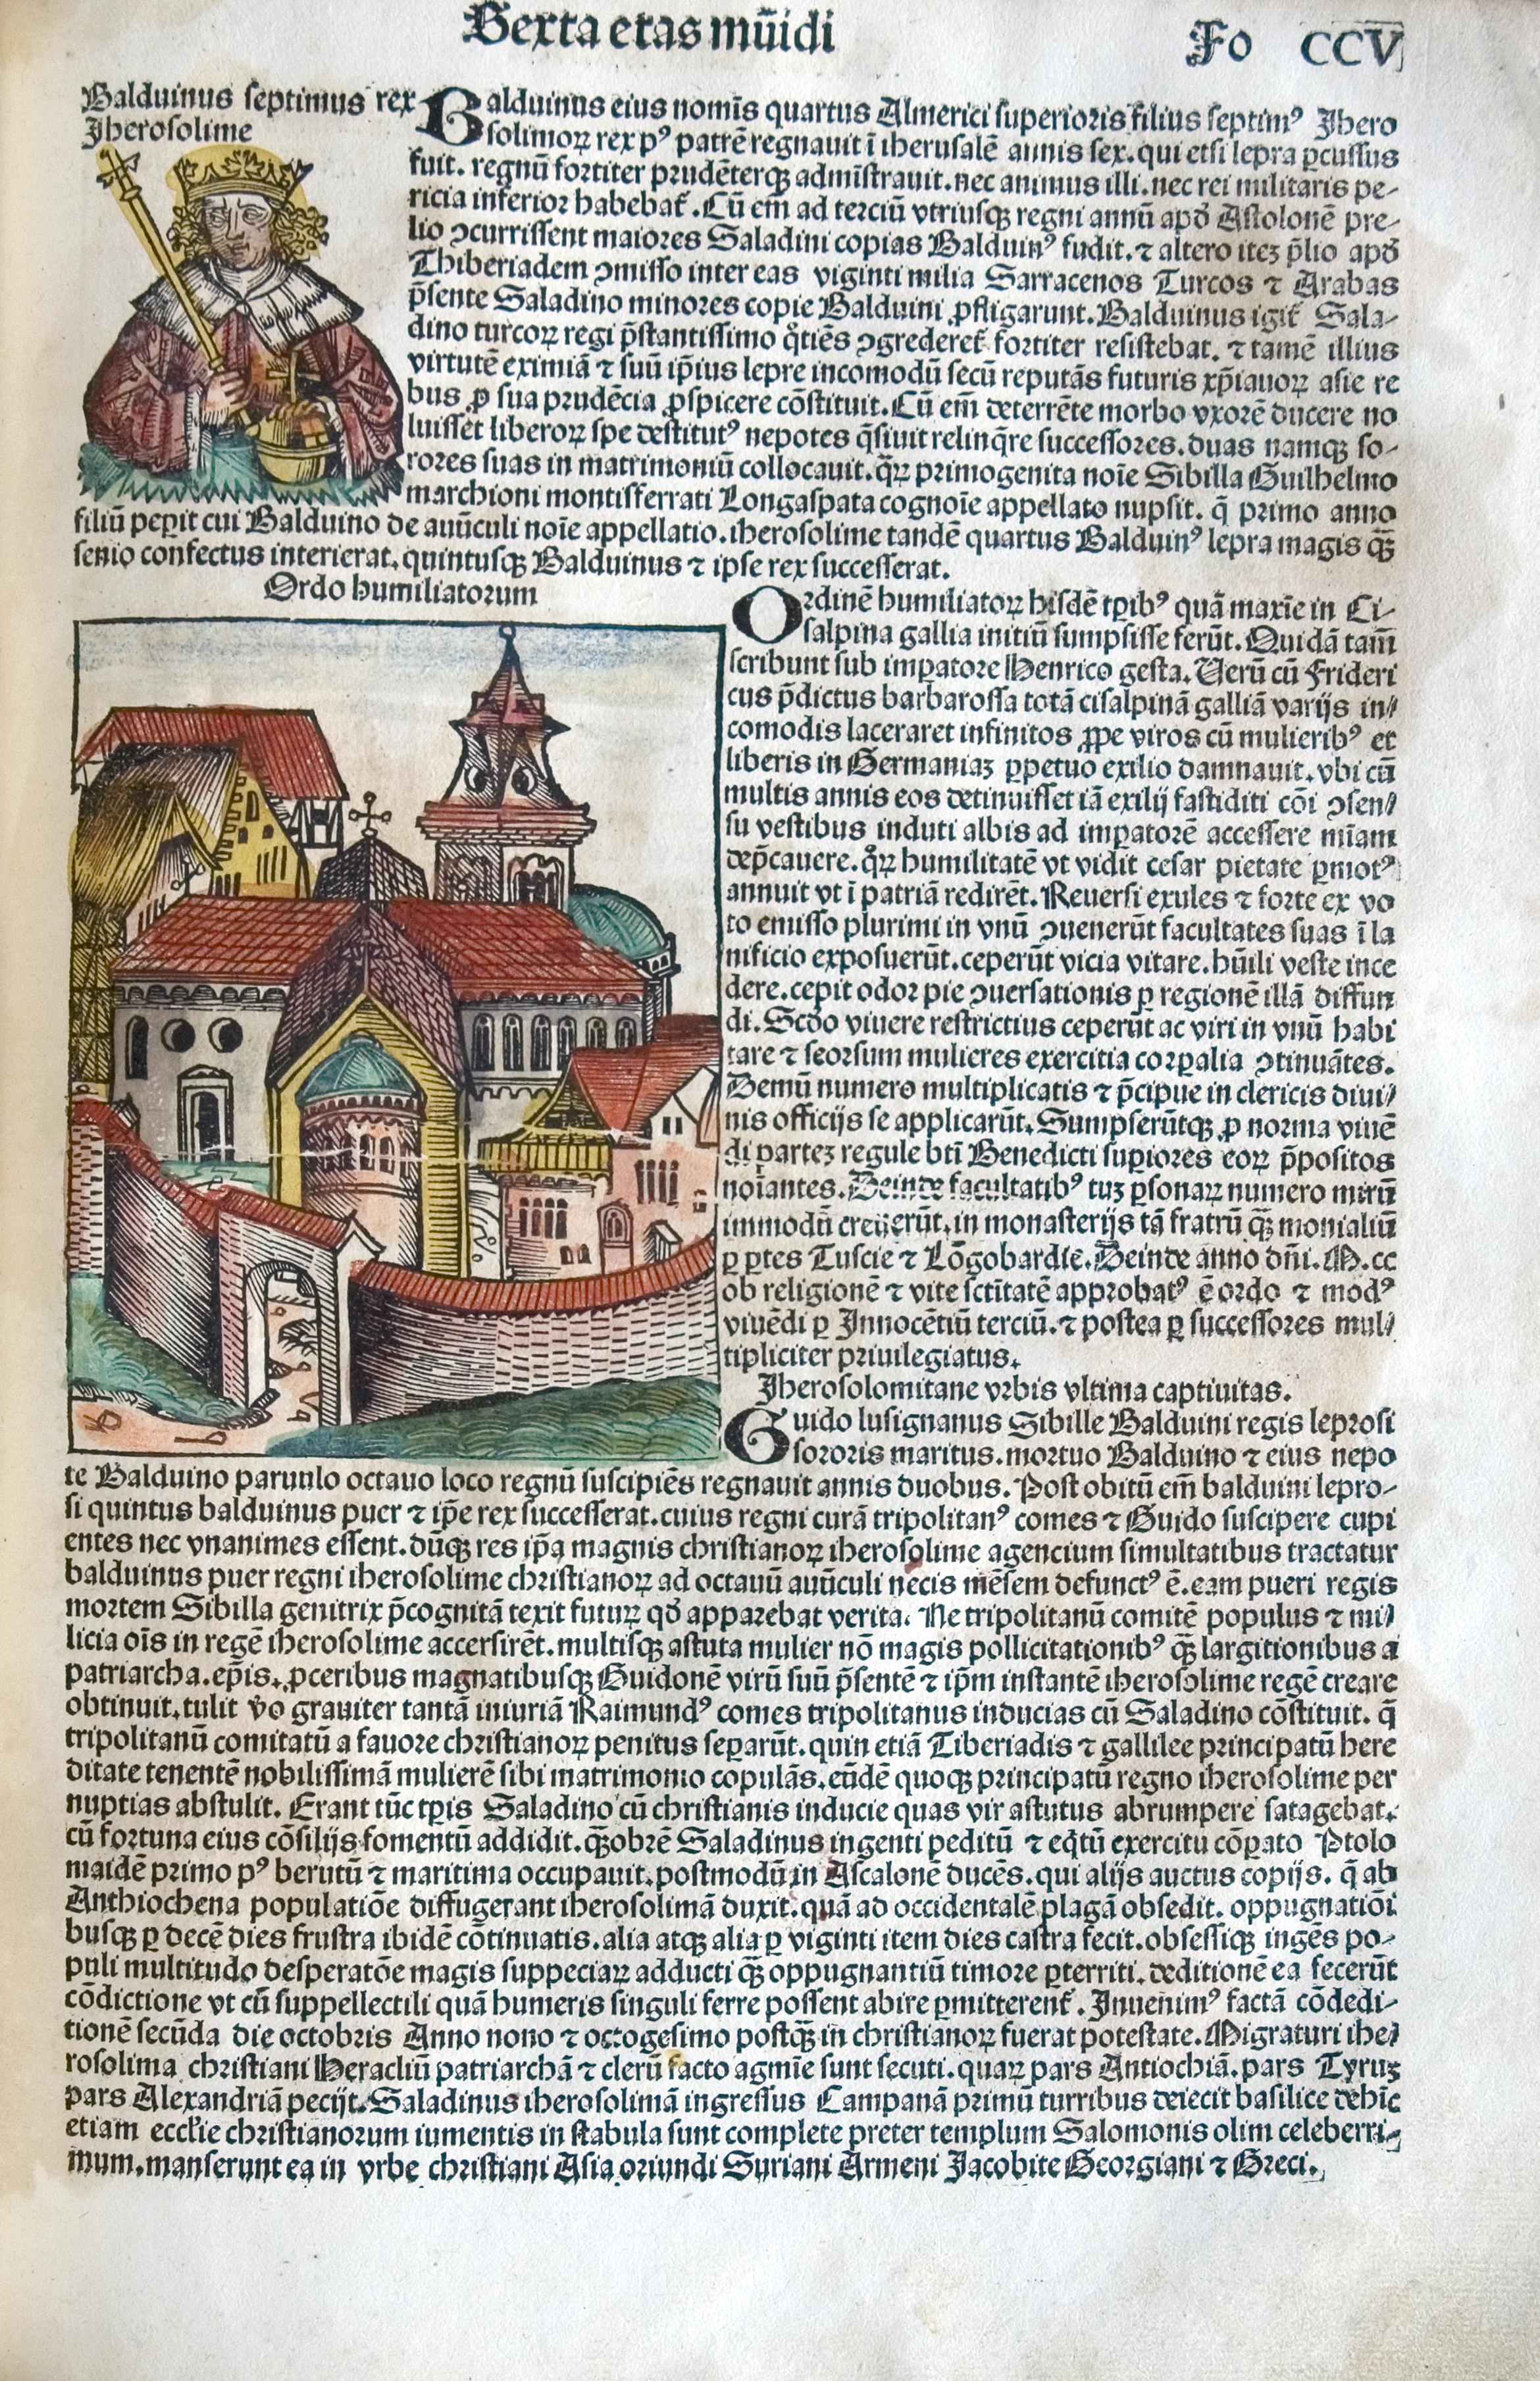 Sexta etas mūdi
Fo CCV
Balduinus septimus rex
Jherosolime
Balduinus eius nomīs quartus Almerici superioris filius septimꝰ Jhero
solimoꝝ rex pꝰ patrē regnauit ī iherusalē annis sex. qui etsi lepra ꝑcussus
fuit. regnū fortiter prudēterqꝫ admīstrauit. nec animus illi. nec rei militaris pe-
ricia inferior habebat᷑. Cū em̄ ad terciū vtriusqꝫ regni annū apđ Astolonē pre-
lio ꝯcurrissent maiores Saladini copias Balduinꝰ fudit. ⁊ altero iteꝫ p̄lio apđ
Thiberiadem ꝯmisso inter eas viginti milia Sarracenos Turcos ⁊ Arabas
p̄sente Saladino minores copie Balduini ꝓfligarunt. Balduinus igit᷑ Sala-
dino turcoꝝ regi p̄stantissimo qͦtiēs ꝯgrederet᷑ fortiter resistebat. ⁊ tamē illius
virtutē eximiā ⁊ suū ip̄ius lepre incomodū secū reputās futuris xp̄ianoꝝ asie re
bus ꝓ sua prudēcia ꝓspicere cōstituit. Cū em̄ deterrēte morbo vxorē ducere no
luisset liberoꝝ spe destitutꝰ nepotes q̄siuit relinq̄re successores. duas namqꝫ so-
rores suas in matrimoniū collocauit. q̄ꝝ primogenita noīe Sibilla Guilhelmo
marchioni montisferrati Longaspata cognoīe appellato nupsit. q̄ primo anno
filiū peꝑit cui Balduino de auūculi noīe appellatio. iherosolime tandē quartus Balduinꝰ lepra magis qꝫ̄
senio confectus interierat. quintusqꝫ Balduinus ⁊ ipse rex successerat.
Ordo humiliatorum
Ordinē humiliatoꝝ hisdē tꝑibꝰ quā maxīe in Ci-
salpina gallia initiū sumpsisse ferūt. Quidā tam̄
scribunt sub imꝑatore Henrico gesta. Uerū cū Frideri
cus p̄dictus barbarossa totā cisalpinā galliā varijs in/
comodis laceraret infinitos ꝓpe viros cū mulieribꝰ et
liberis in Germaniaꝫ ꝑpetuo exilio damnauit. vbi cū
multis annis eos detinuisset iā exilij fastiditi cōi ꝯsen/
su vestibus induti albis ad imꝑatorē accessere mīam
dep̄cauere. qͦꝝ humilitatē vt vidit cesar pietate ꝑmotꝰ
annuit vt ī patriā redirēt. Reuersi exules ⁊ forte ex vo
to emisso plurimi in vnū ꝯuenerūt facultates suas ī la
nificio exposuerūt. ceperūt vicia vitare. hūili veste ince
dere. cepit odor pie ꝯuersationis ꝑ regionē illā diffun
di. Scđo viuere restrictius ceperūt ac viri in vnū habi
tare ⁊ seorsum mulieres exercitia corꝑalia ꝯtinuātes.
Demū numero multiplicatis ⁊ p̄cipue in clericis diui/
nis officijs se applicarūt. Sumpserūtqꝫ ꝓ norma viuē
di parteꝫ regule bt̄i Benedicti suꝑiores eoꝝ p̄positos
noīantes. Deinde facultatibꝰ tuꝫ ꝑsonaꝝ numero mirū
immodū creuerūt. in monasterijs tā fratrū qꝫ̄ monialiū
ꝑ ꝑtes Tuscie ⁊ Lōgobardie. Deinde anno dn̄i. M.cc
ob religionē ⁊ vite sctītatē approbatꝰ ē ordo ⁊ modꝰ
viuēdi ꝑ Innocētiū terciū. ⁊ postea ꝑ successores mul/
tipliciter priuilegiatus.
Jherosolomitane vrbis vltima captiuitas.
Guido lusignanus Sibille Balduini regis leprosi
sororis maritus. mortuo Balduino ⁊ eius nepo
te Balduino paruulo octauo loco regnū suscipiēs regnauit annis duobus. Post obitū em̄ balduini lepro-
si quintus balduinus puer ⁊ ip̄e rex successerat. cuius regni curā tripolitanꝰ comes ⁊ Guido suscipere cupi
entes nec vnanimes essent. dūqꝫ res ip̄a magnis christianoꝝ iherosolime agencium simultatibus tractatur
balduinus puer regni iherosolime christianoꝝ ad octauū auūculi necis mēsem defunctꝰ ē. eam pueri regis
mortem Sibilla genitrix p̄cognitā texit futuꝝ qđ apparebat verita. Ne tripolitanū comitē populus ⁊ mi/
licia oīs in regē iherosolime accersirēt. multisqꝫ astuta mulier nō magis pollicitationibꝰ qꝫ̄ largitionibus a
patriarcha. ep̄is. ꝓceribus magnatibusqꝫ Guidonē virū suū p̄sentē ⁊ ip̄m instantē iherosolime regē creare
obtinuit. tulit v̄o grauiter tantā iniuriā Raimundꝰ comes tripolitanus inducias cū Saladino cōstituit. q̄
tripolitanū comitatū a fauore christianoꝝ penitus seꝑarūt. quin etiā Tiberiadis ⁊ gallilee principatū here
ditate tenentē nobilissimā mulierē sibi matrimonio copulās. eūdē quoqꝫ principatū regno iherosolime per
nuptias abstulit. Erant tūc tꝑis Saladino cū christianis inducie quas vir astutus abrumpere satagebat.
cū fortuna eius cōsilijs fomentū addidit. qꝫ̄obrē Saladinus ingenti peditū ⁊ eq̄tū exercitu cōꝑato Ptolo
maidē primo pꝰ berutū ⁊ maritima occupauit. postmodū in Ascalonē ducēs. qui alijs auctus copijs. q̄ ab
Anthiochena populatiōe diffugerant iherosolimā duxit. quā ad occidentalē plagā obsedit. oppugnatiōi
busqꝫ ꝑ decē dies frustra ibidē cōtinuatis. alia atqꝫ alia ꝑ viginti item dies castra fecit. obsessiqꝫ ingēs po-
puli multitudo desperatōe magis suppeciaꝝ adducti qꝫ̄ oppugnantiū timore ꝑterriti. deditionē ea fecerūt
cōdictione vt cū suppellectili quā humeris singuli ferre possent abire ꝑmitterent᷑. Inuenimꝰ factā cōdedi-
tionē secūda die octobris Anno nono ⁊ octogesimo postqꝫ̄ in christianoꝝ fuerat potestate. Migraturi ihe/
rosolima christiani Heracliū patriarchā ⁊ clerū facto agmīe sunt secuti. quaꝝ pars Antiochiā. pars Tyruꝫ
pars Alexandriā pecijt. Saladinus iherosolimā ingressus Campanā primū turribus deiecit basilice dehīc
etiam eccl̄ie christianorum iumentis in stabula sunt complete preter templum Salomonis olim celeberri-
mum. manserunt ea in vrbe christiani Asia oriundi Suriani Armeni Jacobite Georgiani ⁊ Greci.